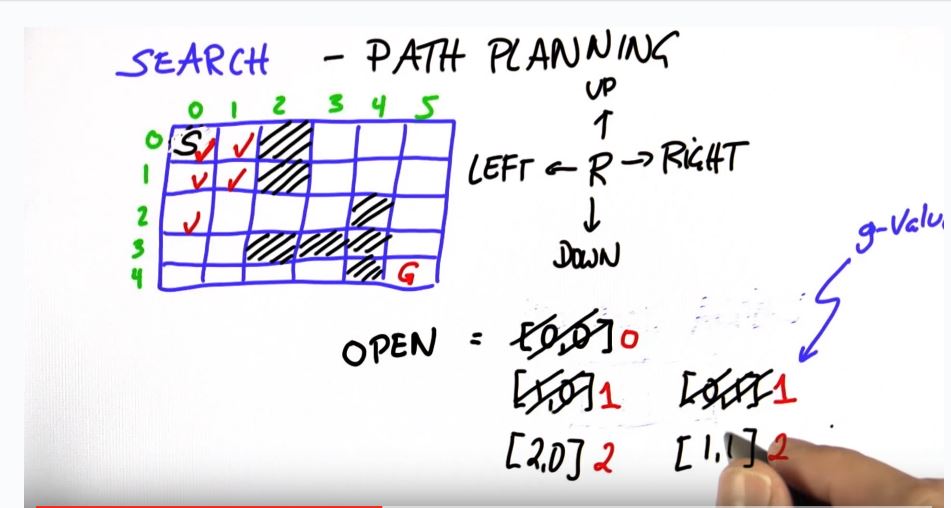 SEARCH - PATH PLANNING
0 1 2 3 4 5
0 S
1
2
3
4 G
UP
LEFT ← R → RIGHT
↓
DOWN
g-Valu
OPEN = [0,0] 0
[1,0] 1 [0,1] 1
[2,0] 2 [1,1] 2